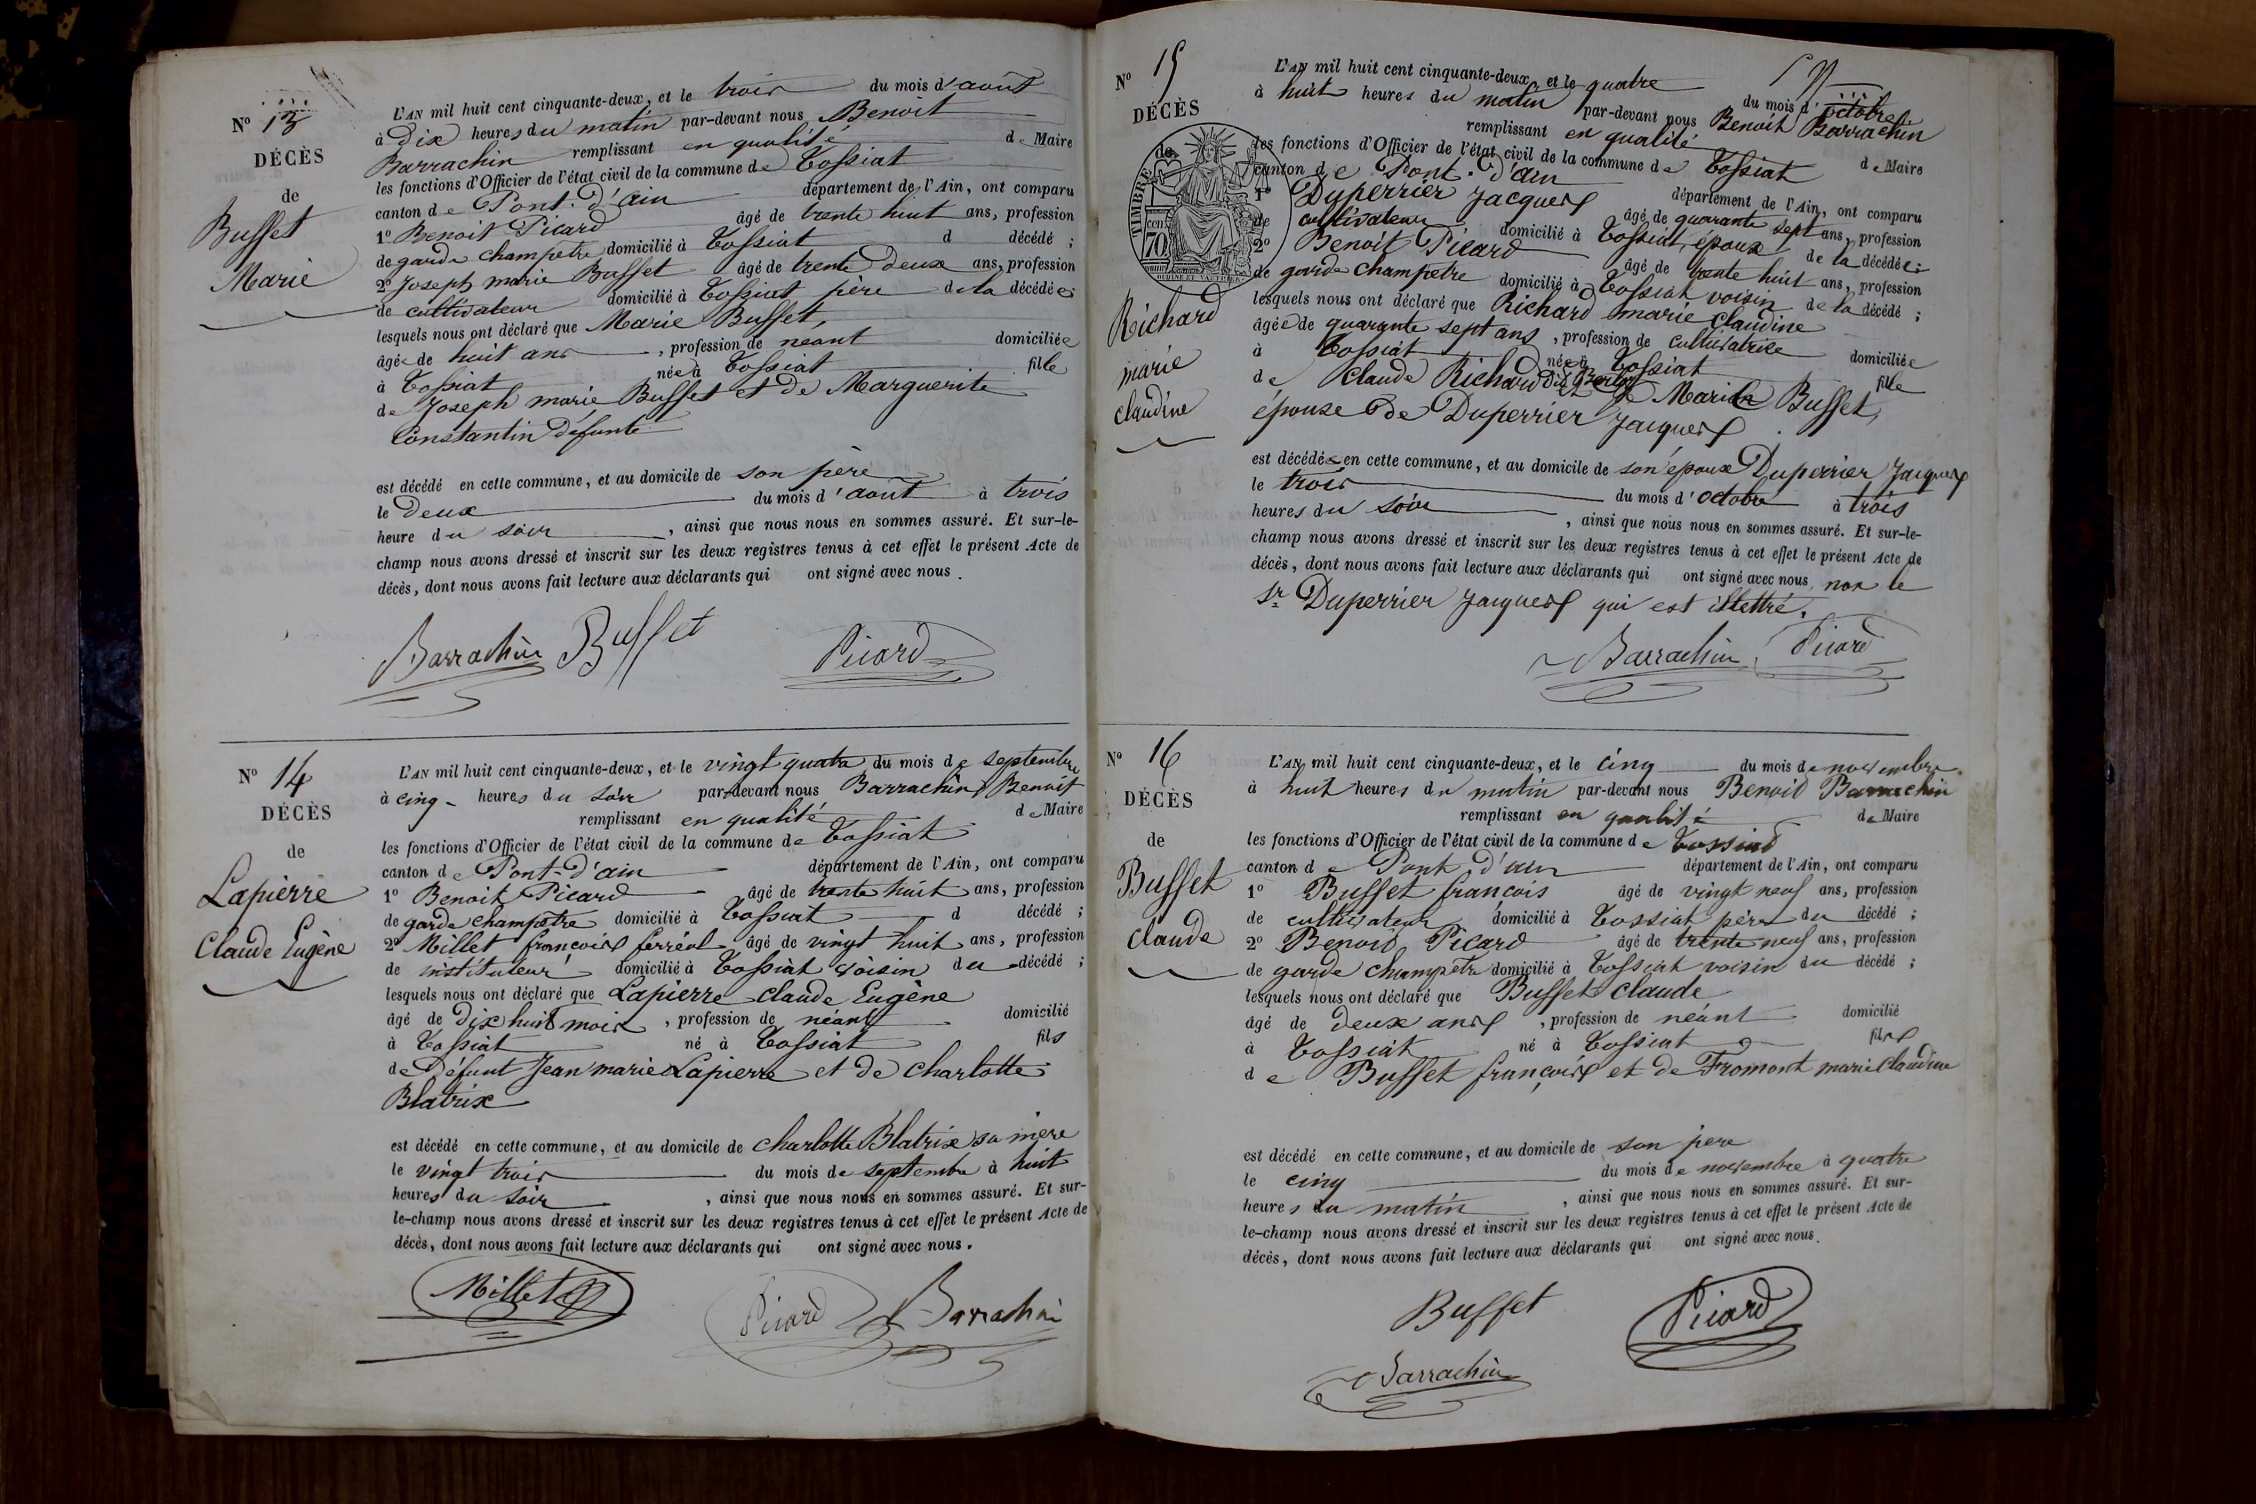 N° 13
DÉCÈS
de
Buffet
Marie
L'AN mil huit cent cinquante-deux, et le trois du mois d'août
à Dix heures du matin par-devant nous Benoit
Barrachin remplissant en qualité de Maire
les fonctions d'Officier de l'état civil de la commune de Tossiat
canton de Pont-d'ain département de l'Ain, ont comparu
1° Benoit Picard âgé de trente huit ans, profession
de garde champetre domicilié à Tossiat d décédé ;
2° Joseph marie Buffet âgé de trente Deux ans, profession
de cultivateur domicilié à Tossiat père de la décédée
lesquels nous ont déclaré que Marie Buffet,
âgée de huit ans, profession de neant domiciliée
à Tossiat née à Tossiat fille
de Joseph marie Buffet et de Marguerite
Constantin défunte
est décédé en cette commune, et au domicile de son père
le Deux du mois d'août à trois
heure du soir, ainsi que nous nous en sommes assuré. Et sur-le-
champ nous avons dressé et inscrit sur les deux registres tenus à cet effet le présent Acte de
décès, dont nous avons fait lecture aux déclarants qui ont signé avec nous.
Barrachin Buffet Picard
N° 14
DÉCÈS
de
Lapierre
Claude Eugène
L'AN mil huit cent cinquante-deux, et le vingt quatre du mois de septembre
à cinq heures du soir par-devant nous Barrachin Benoit
remplissant en qualité de Maire
les fonctions d'Officier de l'état civil de la commune de Tossiat
canton de Pont-d'ain département de l'Ain, ont comparu
1° Benoit Picard âgé de trente huit ans, profession
de garde champetre domicilié à Tossiat d décédé ;
2° Millet françois ferréol âgé de vingt huit ans, profession
de instituteur domicilié à Tossiat voisin du décédé ;
lesquels nous ont déclaré que Lapierre claude Eugène
âgé de dix huit mois, profession de néant domicilié
à Tossiat né à Tossiat fils
de Défunt Jean marie Lapierre et de Charlotte
Blatrix
est décédé en cette commune, et au domicile de charlotte Blatrix sa mère
le vingt trois du mois de septembre à huit
heures du soir, ainsi que nous nous en sommes assuré. Et sur-
le-champ nous avons dressé et inscrit sur les deux registres tenus à cet effet le présent Acte de
décès, dont nous avons fait lecture aux déclarants qui ont signé avec nous.
Millet Picard Barrachin
N° 15
DÉCÈS
de
TIMBRE
70
Richard
marie
claudine
L'AN mil huit cent cinquante-deux, et le quatre du mois d'octobre
à huit heures du matin par-devant nous Benoit Barrachin
remplissant en qualité de Maire
les fonctions d'Officier de l'état civil de la commune de Tossiat
canton de Pont-d'ain département de l'Ain, ont comparu
1° Duperrier Jacques âgé de quarante sept ans, profession
de cultivateur domicilié à Tossiat, époux de la décédée ;
2° Benoit Picard âgé de trente huit ans, profession
de garde champetre domicilié à Tossiat voisin de la décédé ;
lesquels nous ont déclaré que Richard marie claudine
âgée de quarante sept ans, profession de cultivatrice domiciliée
à Tossiat née à Tossiat fille
de Claude Richard et de Marie Buffet,
épouse de Duperrier Jacques
est décédée en cette commune, et au domicile de son époux Duperrier Jacques
le trois du mois d'octobre à trois
heures du soir, ainsi que nous nous en sommes assuré. Et sur-le-
champ nous avons dressé et inscrit sur les deux registres tenus à cet effet le présent Acte de
décès, dont nous avons fait lecture aux déclarants qui ont signé avec nous non le
Sr Duperrier Jacques qui est illettré.
Barrachin Picard
N° 16
DÉCÈS
de
Buffet
claude
L'AN mil huit cent cinquante-deux, et le cinq du mois de novembre
à huit heures du matin par-devant nous Benoit Barrachin
remplissant en qualité de Maire
les fonctions d'Officier de l'état civil de la commune de Tossiat
canton de Pont d'ain département de l'Ain, ont comparu
1° Buffet françois âgé de vingt neuf ans, profession
de cultivateur domicilié à Tossiat père du décédé ;
2° Benoit Picard âgé de trente neuf ans, profession
de garde champetre domicilié à Tossiat voisin du décédé ;
lesquels nous ont déclaré que Buffet claude
âgé de deux ans, profession de néant domicilié
à Tossiat né à Tossiat fils
de Buffet françois et de Fromont marie Claudine
est décédé en cette commune, et au domicile de son pere
le cinq du mois de novembre à quatre
heures du matin, ainsi que nous nous en sommes assuré. Et sur-
le-champ nous avons dressé et inscrit sur les deux registres tenus à cet effet le présent Acte de
décès, dont nous avons fait lecture aux déclarants qui ont signé avec nous.
Buffet Picard
Barrachin